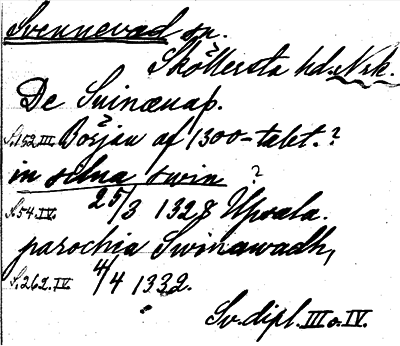 Svennevad sn.
Sköllersta hd. Nrk.
De Suinæuaþ.
S. 152 III Början af 1300-talet.?
in silua swin ?
S. 54. IV. 25/3 1328 Upsala.
parochia Swinawadh,
S. 262. IV 4/4 1332.
Sv. dipl. III o. IV.